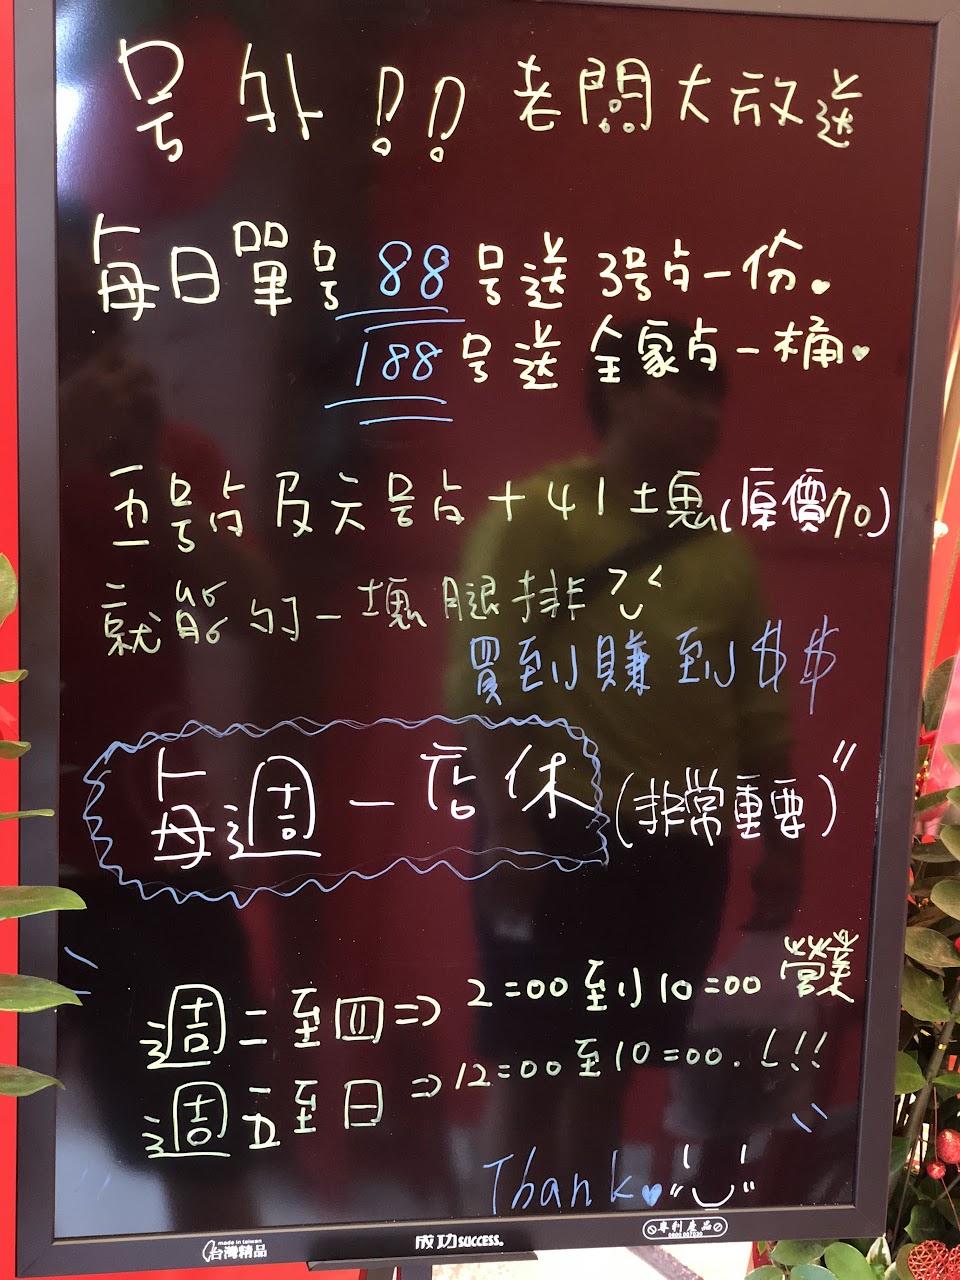 号外!! 老闆大放送
每日單号 88 号送 3号点一份.
188 号送 全家点一桶
五号点及六号点 + 41 土塊 (原價70)
就能的一塊腿排
買到小賺到小 $$
每週一店休 (非常重要)
週二至四 => 2=00 至小 10=00 營業
週五至日 => 12=00 至 10=00. !!!
Thank
made in taiwan
台灣精品
成功 SUCCESS.
專利產品